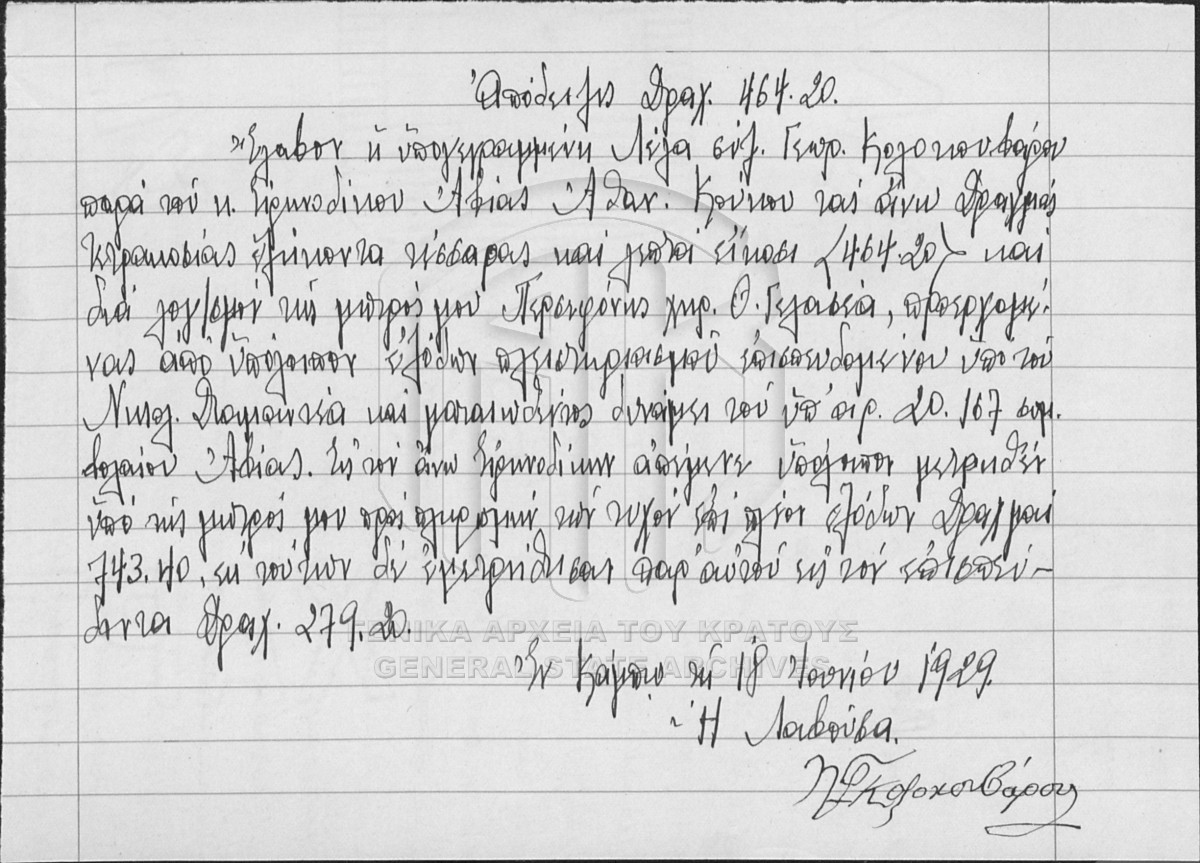 Ἀπόδειξις Δραχ. 464.20.
Ἔλαβον ἡ ὑπογεγραμμένη Λέλα σύζ. Γεωρ. Κολοκουβάρου
παρά τοῦ κ. Εἰρηνοδίκου Ἀβίας Ἀθαν. Κούκου τάς ἄνω δραχμάς
τετρακοσίας ἑξήκοντα τέσσαρας καί λεπτά εἴκοσι (464.20) καί
διά λογ/σμόν τῆς μητρός μου Περσεφόνης χηρ. Θ. Γελασέα, προερχομέ-
νας ἀπό ὑπόλοιπον ἐξόδων πλειστηριασμοῦ ἐπισπευδομένου ὑπό τοῦ
Νικολ. καί ματαιωθέντος δυνάμει τοῦ ὑπ' ἀρ. 20.167 συμ-
βολαίου Ἀβίας. Εἰς τόν ἄνω Εἰρηνοδίκην ἀπέμενε ὑπόλοιπον μετρηθέν
ὑπό τῆς μητρός μου πρός πληρωμήν τῶν τυχόν ἐπί πλέον ἐξόδων δραχμαί
743.40, ἐκ τούτων δέ ἐμετρήθησαν παρ' αὐτοῦ εἰς τόν ἐπισπεύ-
δοντα Δραχ. 279.20.
ΓΕΝΙΚΑ ΑΡΧΕΙΑ ΤΟΥ ΚΡΑΤΟΥΣ
GENERAL STATE ARCHIVES
Ἐν Κάμπῳ τῇ 18 Ἰουνίου 1929.
Ἡ Λαβοῦσα.
Κολοκουβάρου